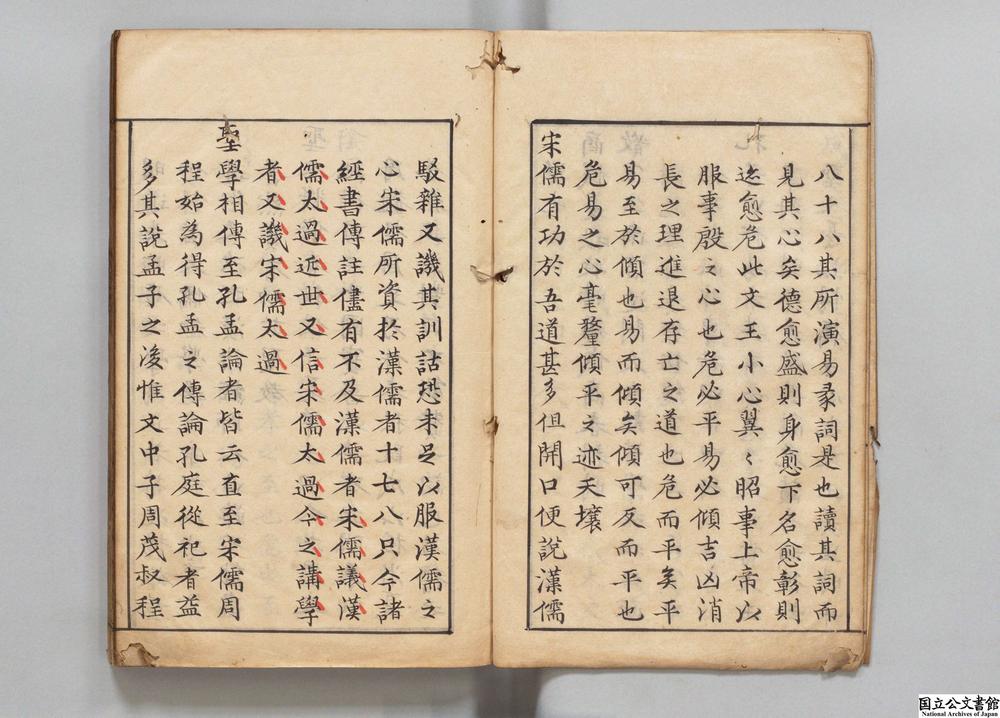 八十八其所演易彖詞是也讀其詞而
見其心矣德愈盛則身愈下名愈彰則
迹愈危此文王小心翼〻昭事上帝以
服事殷之心也危必平易必傾吉凶消
長之理進退存亡之道也危而平矣平
易至於傾也易而傾矣傾可反而平也
危易之心毫釐傾平之迹天壤
宋儒有功於吾道甚多但開口便說漢儒
駁雜又譏其訓詁恐未足以服漢儒之
心宋儒所資於漢儒者十七八只今諸
經書傳註儘有不及漢儒者宋儒議漢
儒太過近世又信宋儒太過今之講學
者又譏宋儒太過
聖學相傳至孔孟論者皆云直至宋儒周
程始為得孔孟之傳論孔庭從祀者益
多其說孟子之後惟文中子周茂叔程
国立公文書館
National Archives of Japan